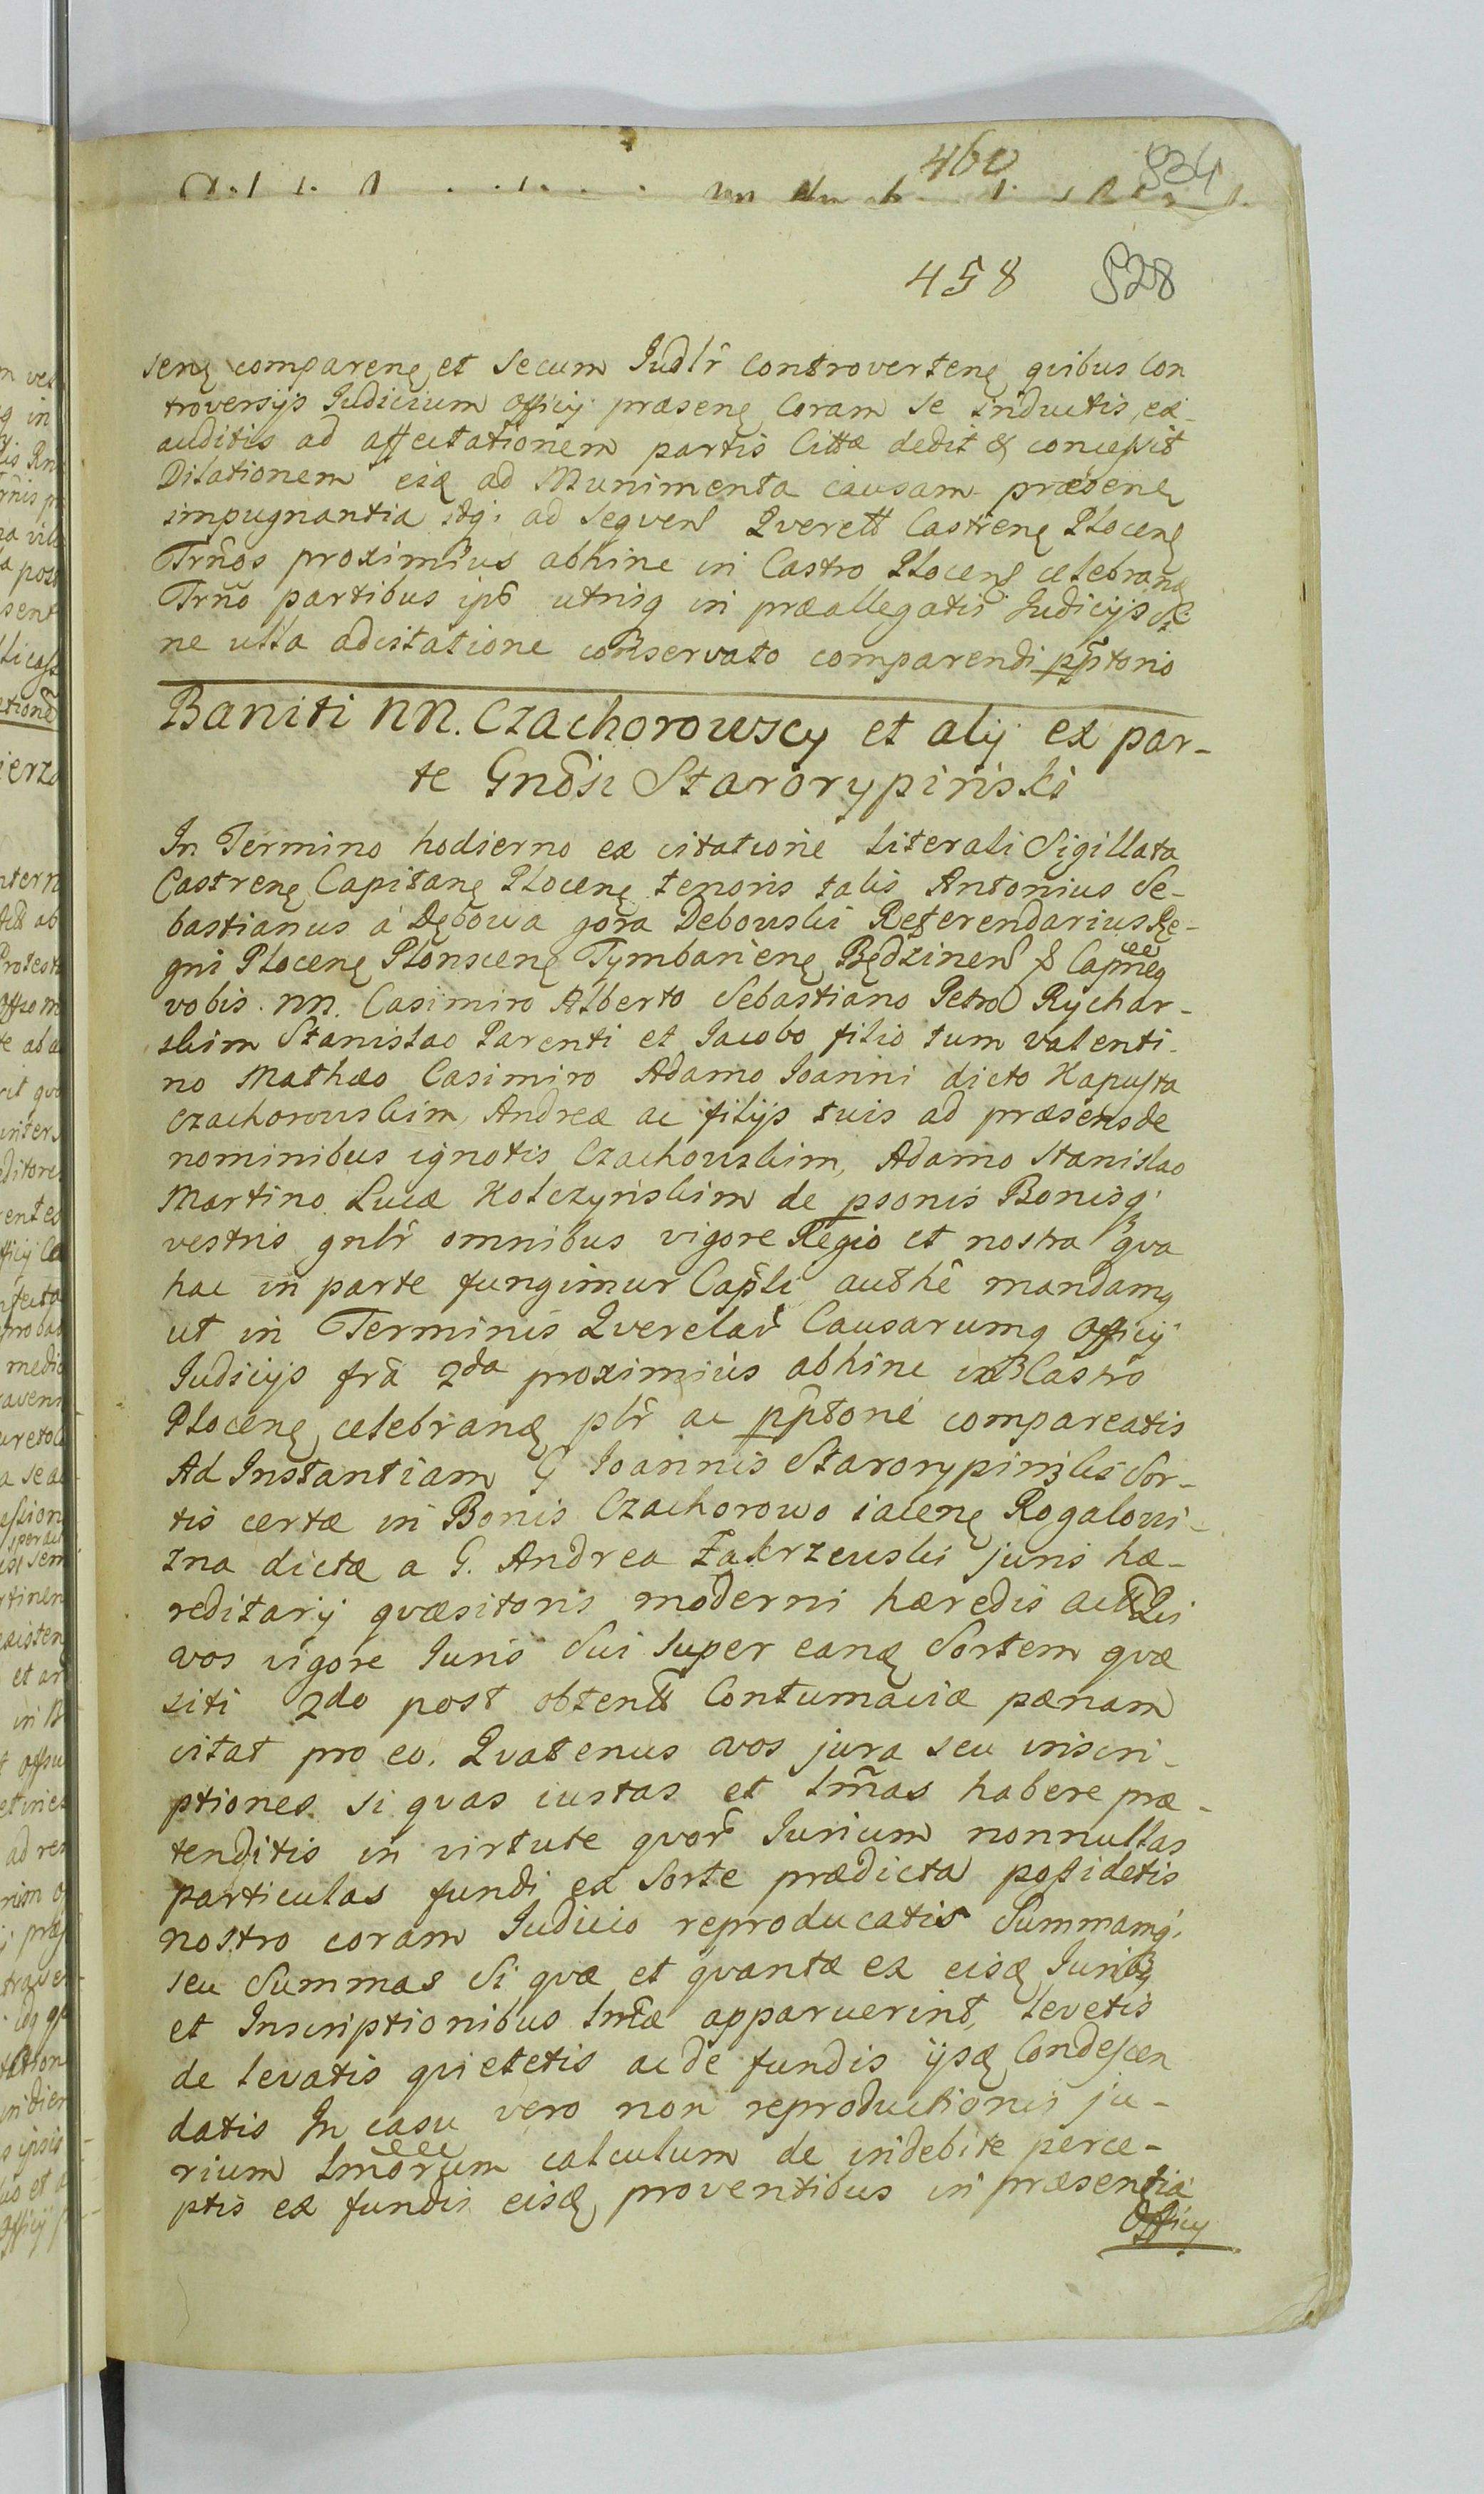 460 834
458 828
senę comparenę et secum Judlr̂ controvertenę quibus con
troversijs Judicium Officij præsenę Coram se inductis ex-
auditis ad affectationem partis Cittæ dedit & concessit
Dilationem eisą ad Munimenta causam præsenę
impugnantia idq; ad sequen Querell Castrenę Plocenę
Trños proximius abhinc in Castro Plocen celebraną
Trño partibus ips utrisq in præallegatis Judicijs si
ne ulla adcitatione conservato comparendi pptorio
Baniti NN. Czachorowscy et alij ex par-
te Gnosi Starorypiński
In Termino hodierno ex citatione literali Sigillata
Castrenę Capitanę Plocenę tenoris talis Antonius Se-
bastianus à Dębowa gora Debowski Referendarius Re-
gni Plocenę Plonscenę Tymbarienę Będzinen & Capneą
vobis NN. Casimiro Alberto Sebastiano Petro Rychar-
skim Stanislao Parenti et Jacobo filio tum Valenti-
no Mathæo Casimiro Adamo Joanni dicto Kapusta
Czachorowskim, Andreæ ac filijs suis ad præsens de
nominibus ignotis Czachowskim, Adamo Stanislao
Martino Lucæ Kolczyńskim de psonis Bonisq'
vestris gnlr̂ omnibus vigore Regio et nostra qua
hac in parte fungimur Capli authê mandamq
ut in Terminis Querelar̂ Causarumq Officij
Judicijs frâ 2da proximius abhinc in Castro
Plocenę celebraną plr̂ ac pptoriè compareatis
Ad Instantiam G Joannis Starorypinski Sor-
tis certæ in Bonis Czachorowo iacenę Rogalowi-
zna dictæ a G. Andrea Zakrzewski juris hæ-
reditarij quæsitoris moderni hæredis Qui
vos vigore Juris Sui super eaną Sortem quæ
siti 2do post obtent Contumaciæ pænam
citat pro eo. Quatenus vos jura seu inscri-
ptiones si quas iustas et lm̃as habere præ-
tenditis in virtute quor̂ Jurium nonnullas
particulas fundi ex Sorte prædicta possidetis
nostro coram Judicio reproducatis Summamq'
seu Summas Si quæ et quantæ ex eisą Jurib9
et Inscriptionibus lmæ apparuerint, levetis
de levatis quietetis ac de fundis ijsą Condescen
datis In casu vero non reproductionis ju-
rium lmorum calculum de indebite perce-
ptis ex fundis eisą proventibus in præsentia
Officij